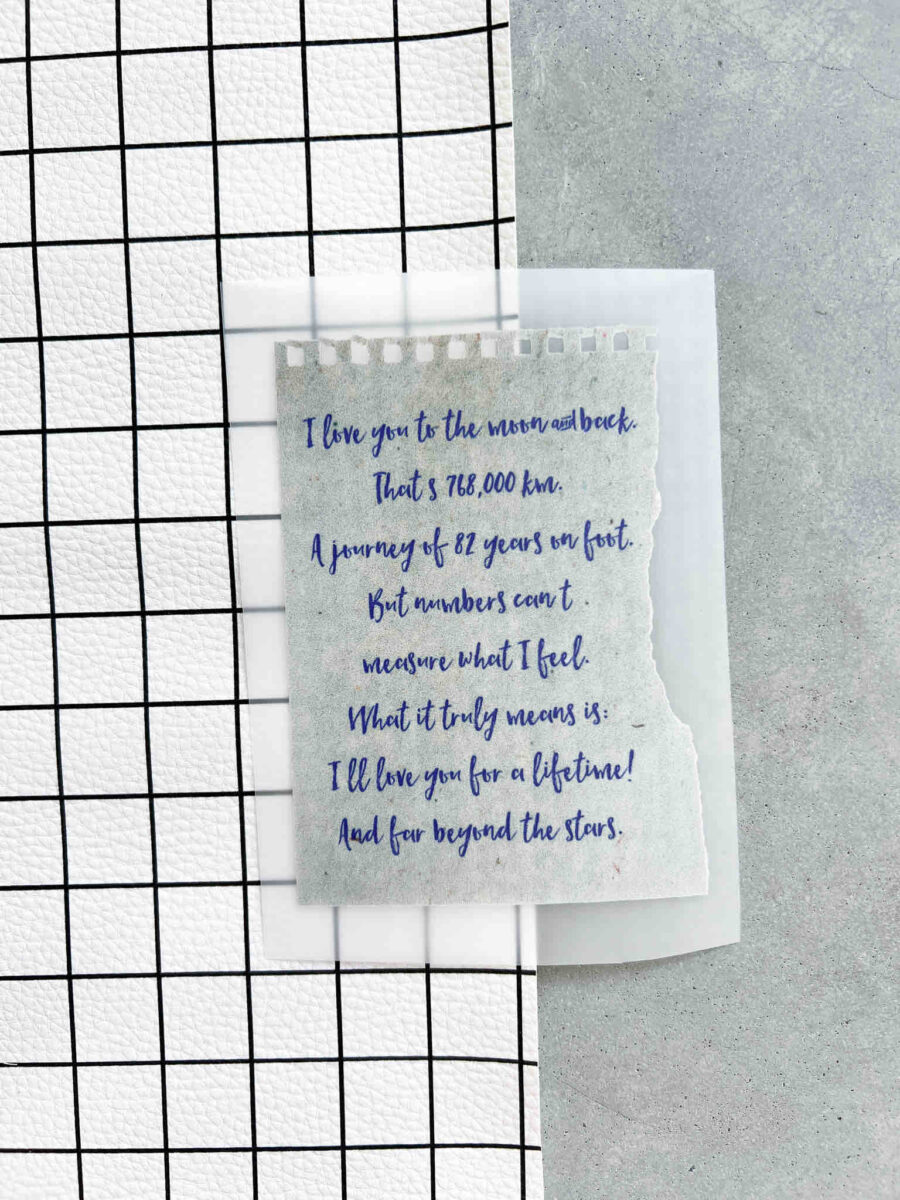 I love you to the moon and back.
That s 768,000 km.
A journey of 82 years on foot.
But numbers can t .
measure what I feel.
What it truly means is:
I ll love you for a lifetime!
And far beyond the stars.